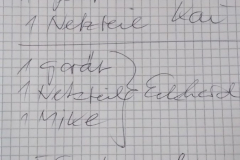 1 Netzteil Kai
1 Gerät
1 Netzteil Eckhard
1 Mike